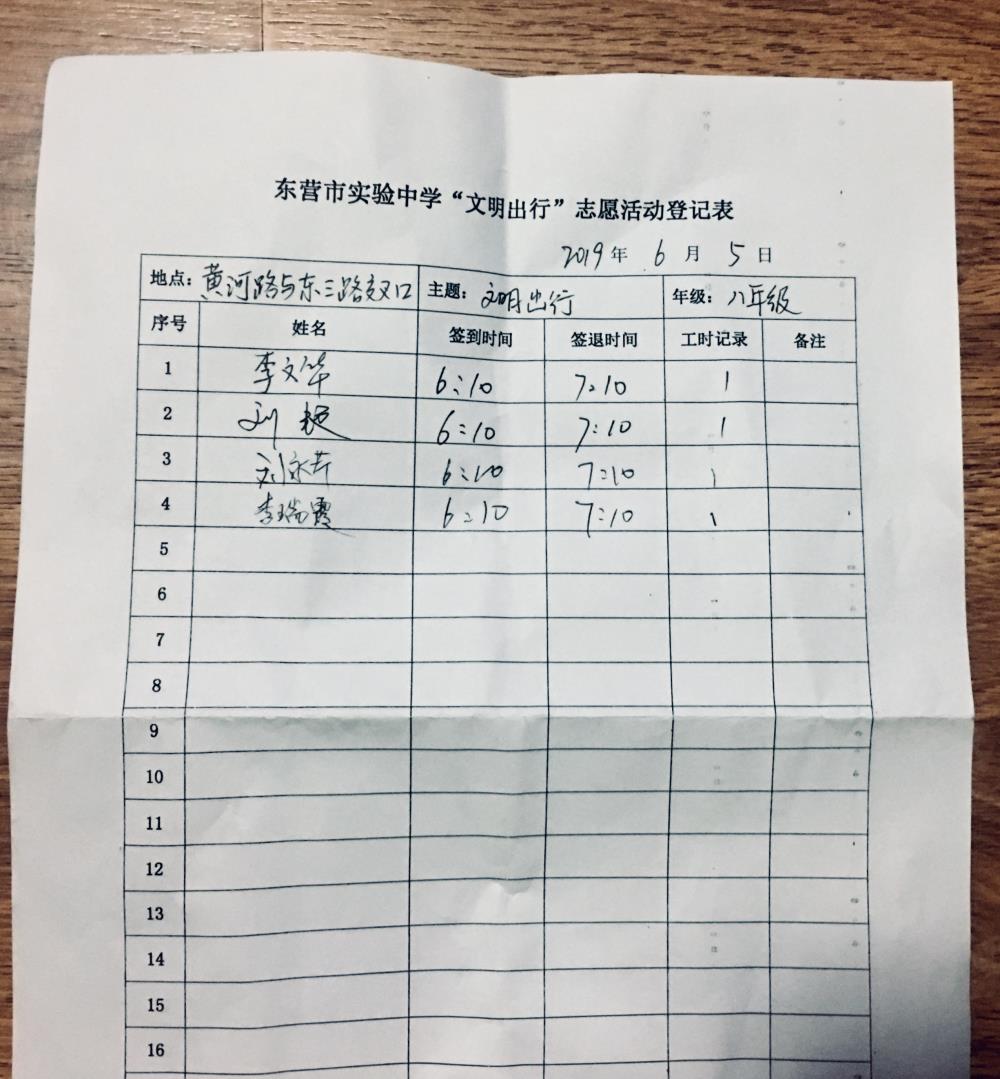 东营市实验中学“文明出行”志愿活动登记表
2019年 6月 5日
地点：黄河路与东三路交叉口 主题：文明出行 年级：八年级
序号 姓名 签到时间 签退时间 工时记录 备注
1 李文华 6:10 7:10 1
2 刘 6:10 7:10 1
3 刘永芹 6:10 7:10 1
4 李瑞霞 6:10 7:10 1
5
6
7
8
9
10
11
12
13
14
15
16